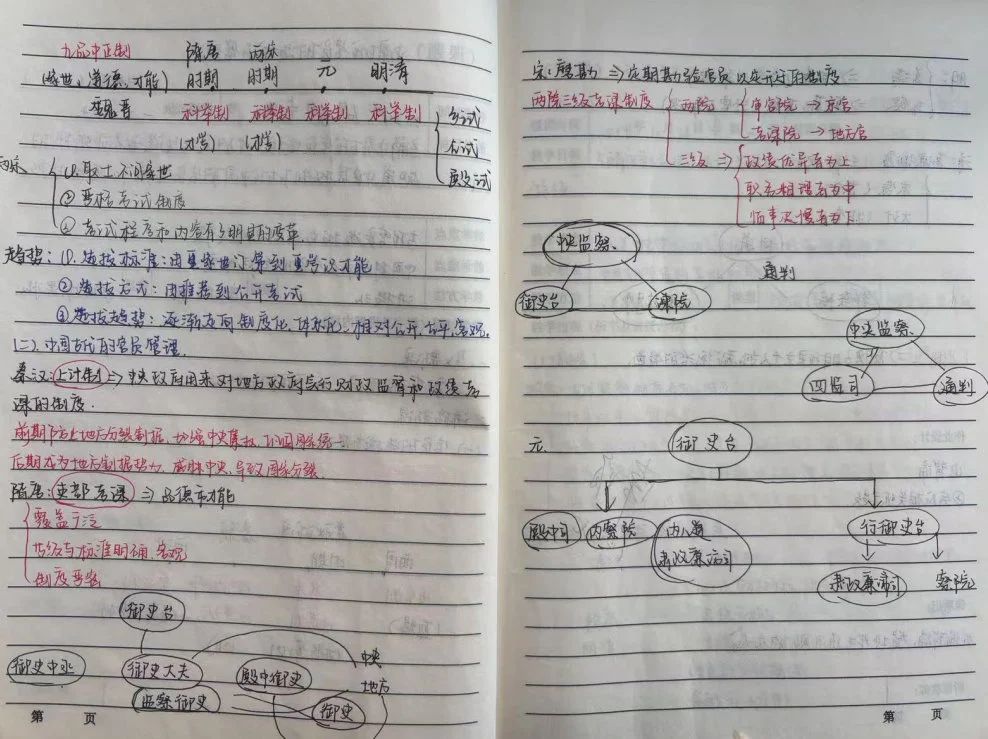 九品中正制 隋唐 两宋
(家世、道德、才能) 时期 时期 元 明清
魏晋 科举制 科举制 科举制 科举制 乡试
(才学) (才学) 会试
殿试
两宋 ①.取士不问家世
②严格考试制度
③考试程序和内容有了明显的变革.
趋势: ①.选拔标准:由重家世门第到重学识才能
②选拔方式:由推荐到公开考试
③选拔趋势:逐渐走向制度化、体系化、相对公开、公平、客观.
(二).中国古代的官员管理.
秦汉:上计制 ⇒ 中央政府用来对地方政府实行财政监督和政绩考
课的制度.
前期防止地方分裂割据,加强中央集权,巩固国家统一.
后期成为地方割据势力,威胁中央,导致国家分裂.
隋唐:吏部考课 ⇒ 品德和才能
覆盖广泛
等级与标准明确,客观
制度严密
御史台
御史中丞 御史大夫 殿中御史 中央
监察御史 御史 地方
第 页
宋:磨勘 ⇒ 定期勘验官员 以定升迁的制度
两院三级考课制度 两院 审官院 → 京官
考课院 → 地方官
三级 ⇒ 政绩优异者为上
职务粗理者为中
临事

慢者为下
中央监察.
通判
御史台 谏院
中央监察.
四监司 通判
元. 御史台
殿中司 内察院 内八道 行御史台
肃政廉访司
肃政廉访司 察院
第 页